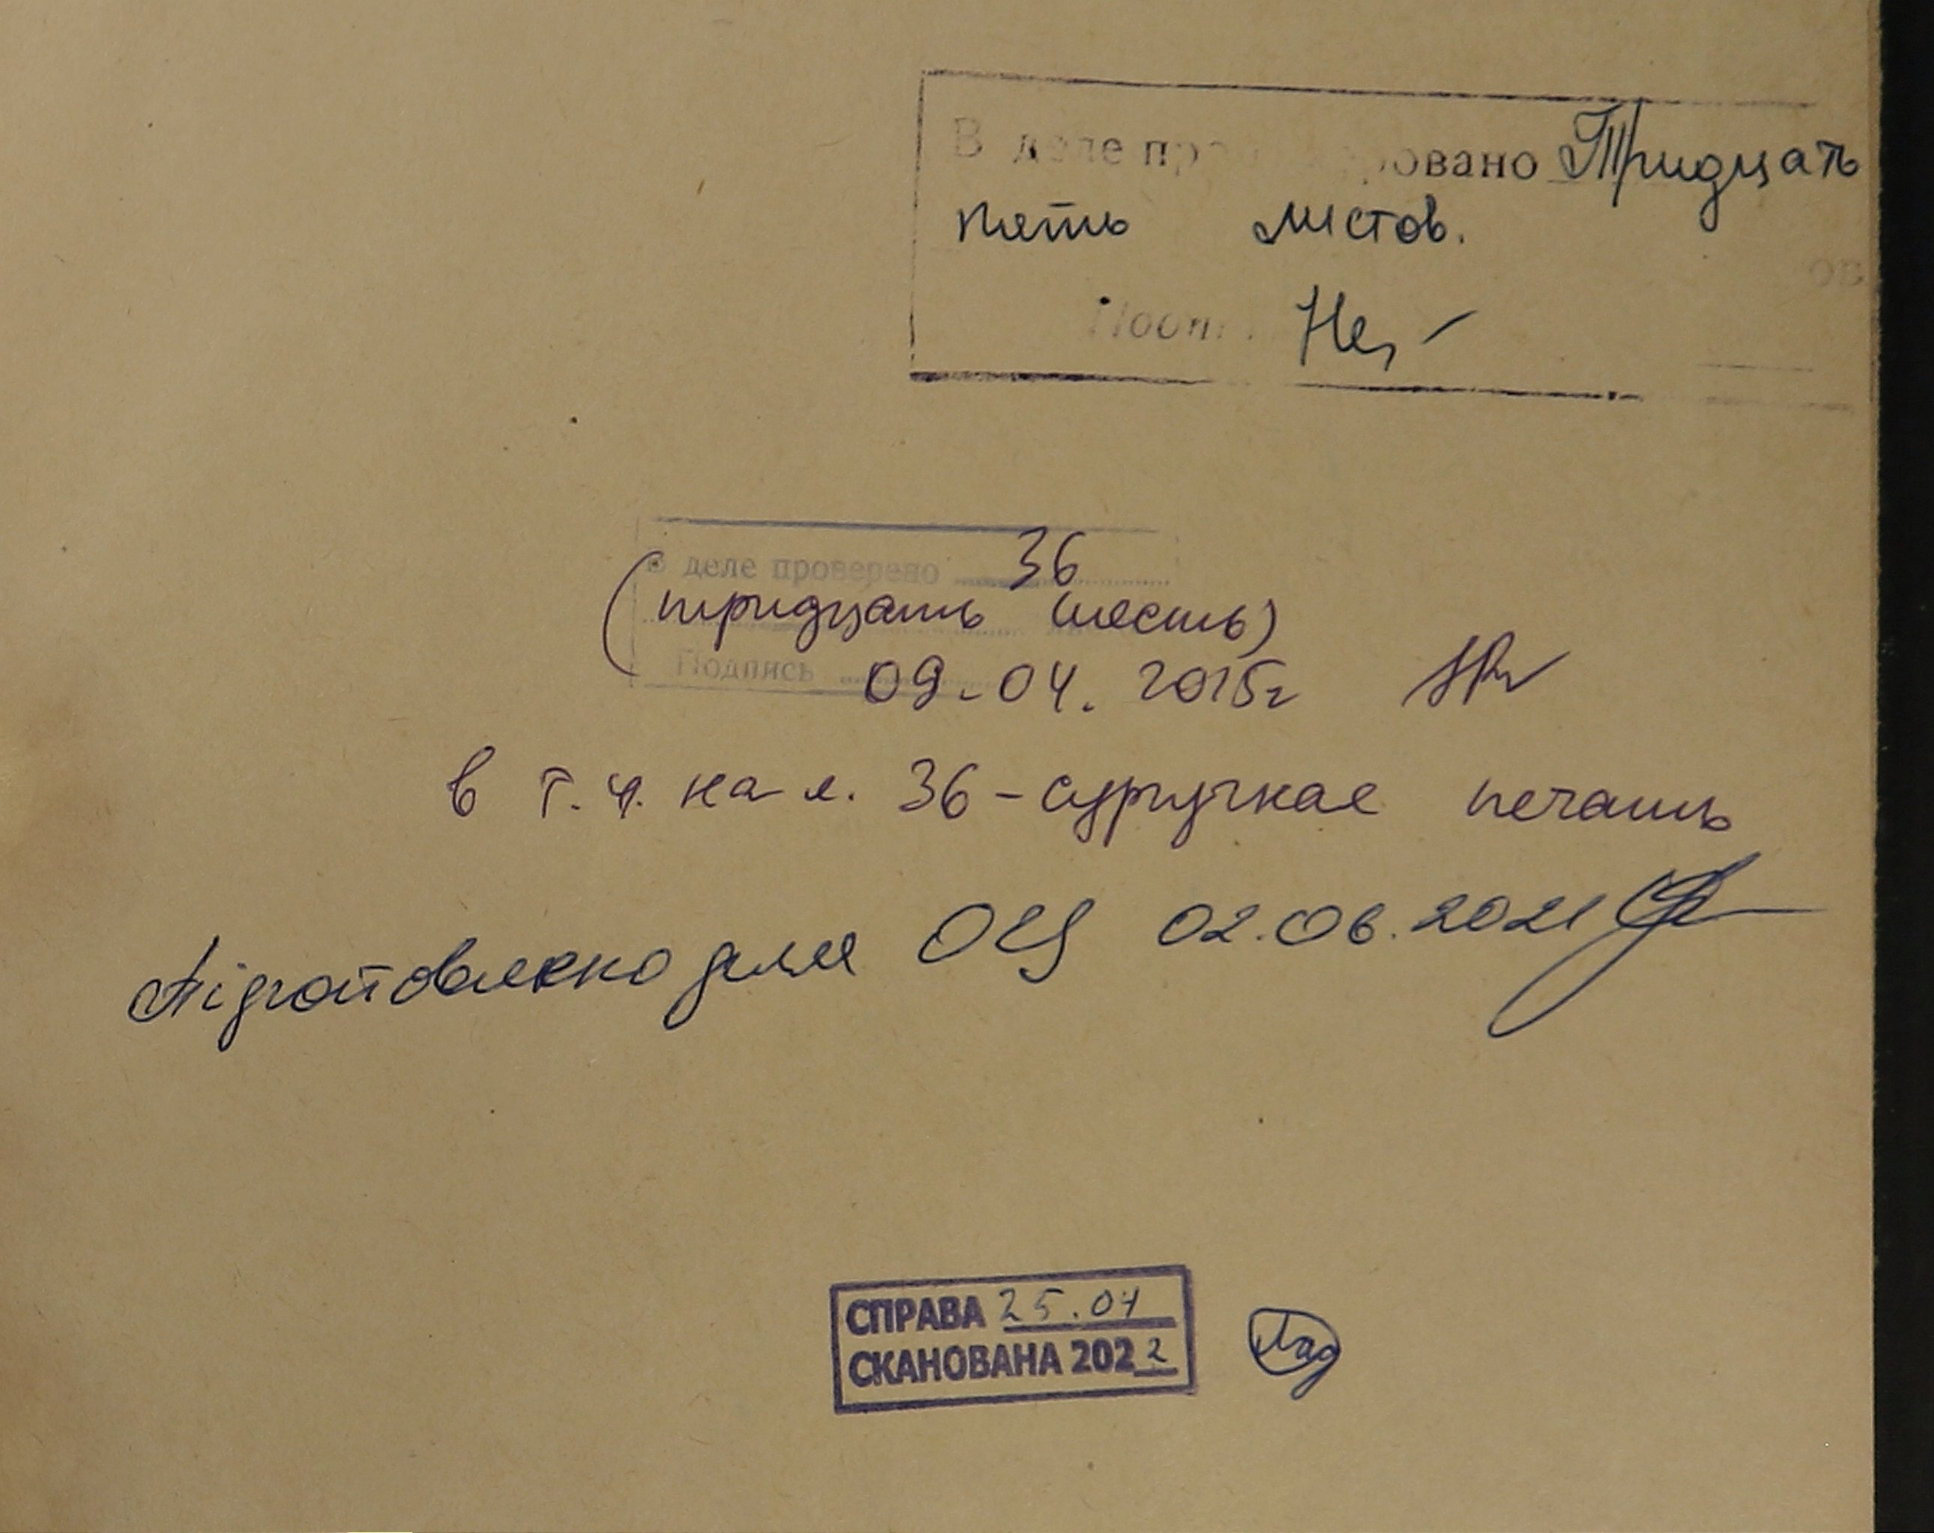 В деле пронумеровано Тридцать
пять листов.
в деле проверено 36
(тридцать шесть)
Подпись
09.04.2015г
в т.ч. на л. 36 - сургучная печать
Підготовлено для ОЦ 02.06.2021
СПРАВА 25.04
СКАНОВАНА 2022